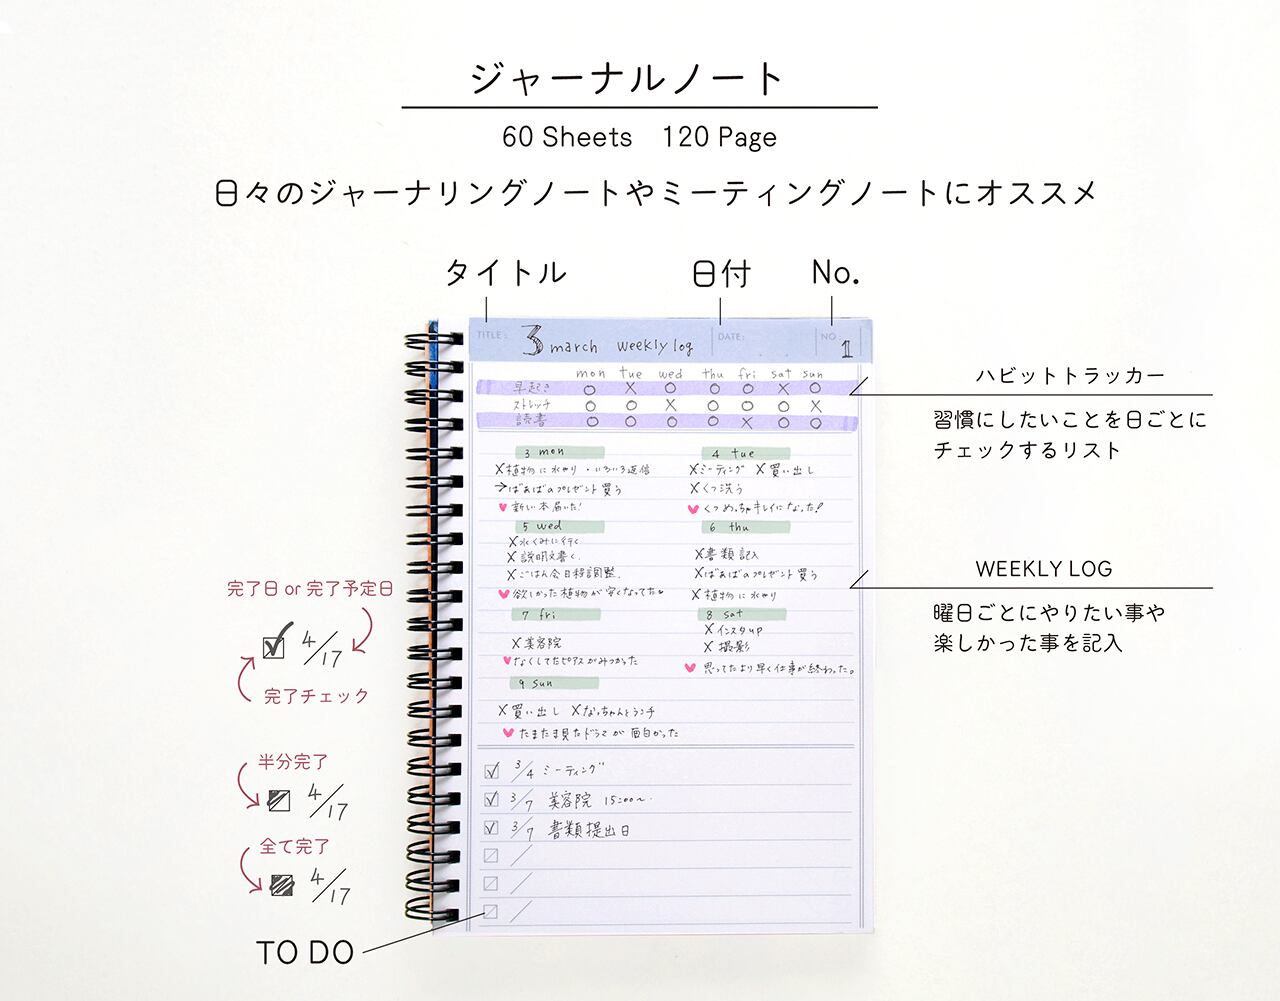 ジャーナルノート
60 Sheets 120 Page
日々のジャーナリングノートやミーティングノートにオススメ
タイトル 日付 No.
TITLE: 3 march weekly log DATE: NO. 1
mon tue wed thu fri sat sun
早起き ○ X ○ ○ ○ X ○
ストレッチ ○ ○ X ○ ○ ○ X
読書 ○ ○ ○ ○ X ○ ○
ハビットトラッカー
習慣にしたいことを日ごとに
チェックするリスト
3 mon
X植物に水やり ・いろいろ返信
→ばあばのプレゼント買う
♥新しい本届いた!
4 tue
Xミーティング X買い出し
Xくつ洗う
♥くつめっちゃキレイになった!
5 wed
X水くみに行く
X説明文書く.
Xごはん会日程調整.
♥欲しかった植物が安くなってた♥
6 thu
X書類記入
Xばあばのプレゼント買う
X植物に水やり
7 fri
X美容院
♥なくしてたピアスがみつかった
8 sat
Xインスタup
X撮影
♥思ってたより早く仕事が終わった。
9 sun
X買い出し Xなっちゃんとランチ
♥たまたま見たドラマが面白かった
WEEKLY LOG
曜日ごとにやりたい事や
楽しかった事を記入
3/4 ミーティング
3/7 美容院 15:00~
3/7 書類提出日
/
/
/
完了日 or 完了予定日
4/17
完了チェック
半分完了
4/17
全て完了
4/17
TO DO